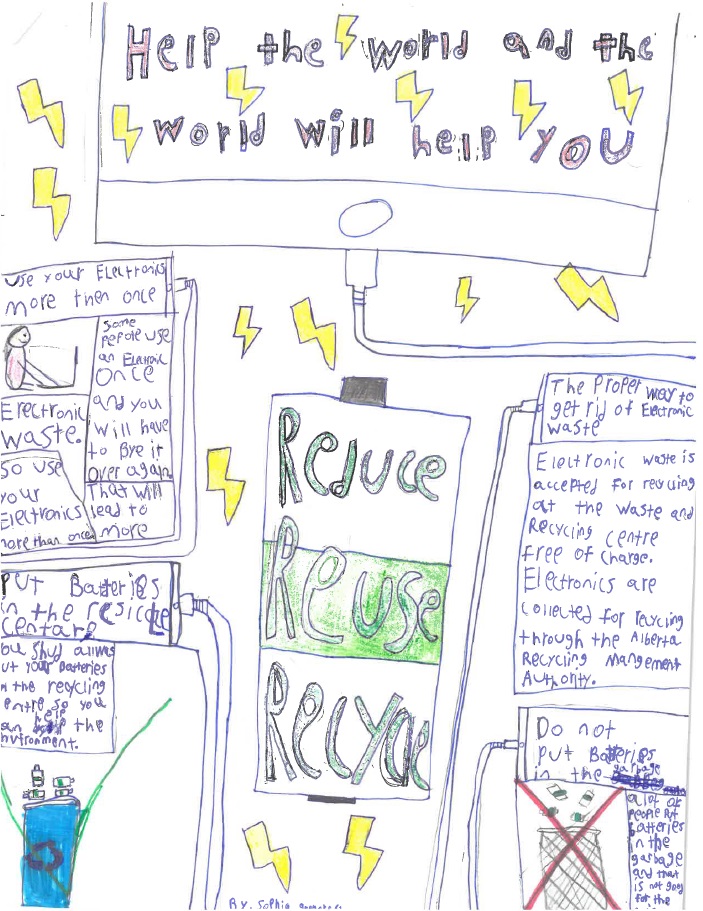 Help the world and the
world will help you
use your Electronics
more then once
some
people use
an Electronic
once
and you
will have
to Bye it
over again
That will
lead to
more
Electronic
waste.
So use
your
Electronics
more than once
Put Batteries
in the
centare
You Shud allways
put your batteries
in the recycling
centre so you
can help the
envtronment.
Reduce
Reuse
Recycle
The Proper way to
get rid of Electronic
waste
Electronic waste is
accepted for recycling
at the Waste and
Recycling Centre
free of charge.
Electronics are
collected for recycling
through the Alberta
Recycling Mangement
Authority.
Do not
put Batteries
in the garbage
a lot of
people put
batteries
in the
garbage
and that
is not good
for the
By. Sophia